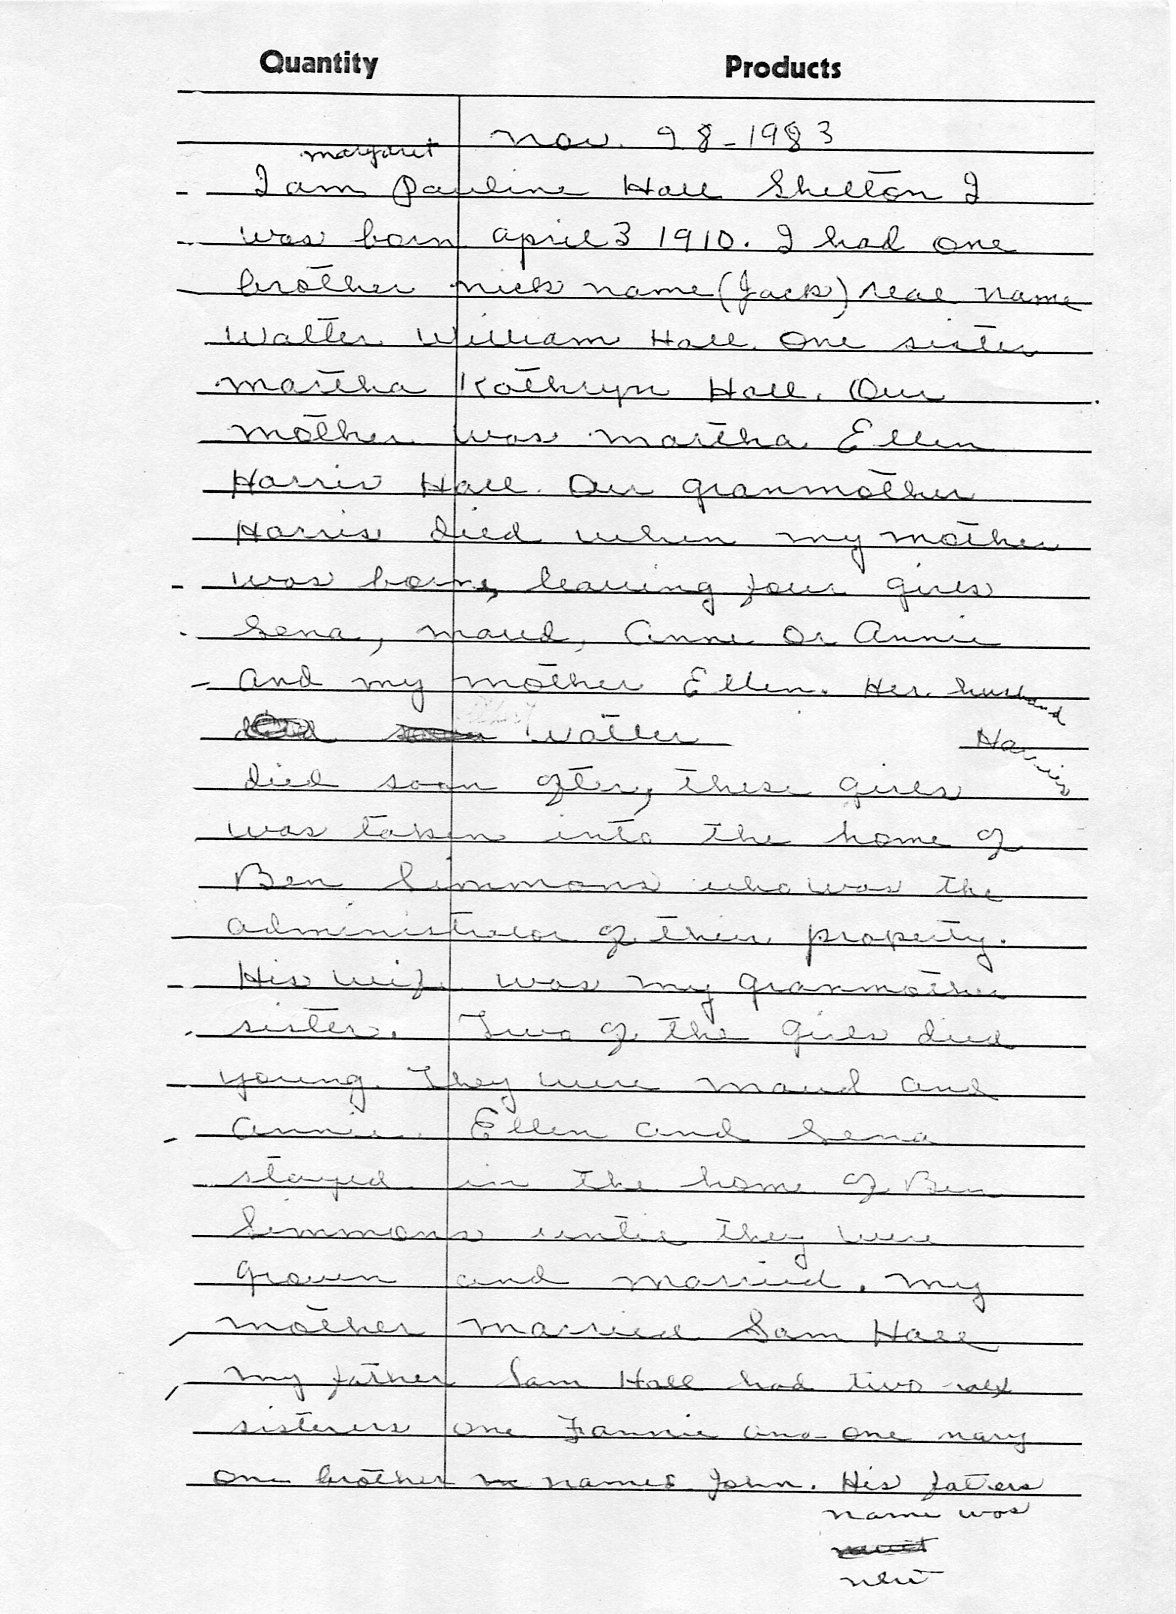 Quantity Products
Nov. 28-1983
margaret
I am Pauline Hall Shelton I
was born april 3 1910. I had one
brother nick name (Jack) real name
Walter William Hall. One sister
martha Kathryn Hall. Our
mother was martha Ellen
Harris Hall. Our granmother
Harris died when my mother
was borne, leaving four girls
Sena, maud, Anne or Annie
and my mother Ellen. Her husband
Walter Harris
died soon after, these girls
was taken into the home of
Ben Simmons who was the
administrator of their property.
His wife was my granmother
sister. Two of the girls died
young. They were maud and
annie. Ellen and Sena
stayed in the home of Ben
Simmons until they were
grown and married. my
mother married Sam Hall
my father Sam Hall had two
sisterers one Fannie and one mary
one brother names John. His faters
name was